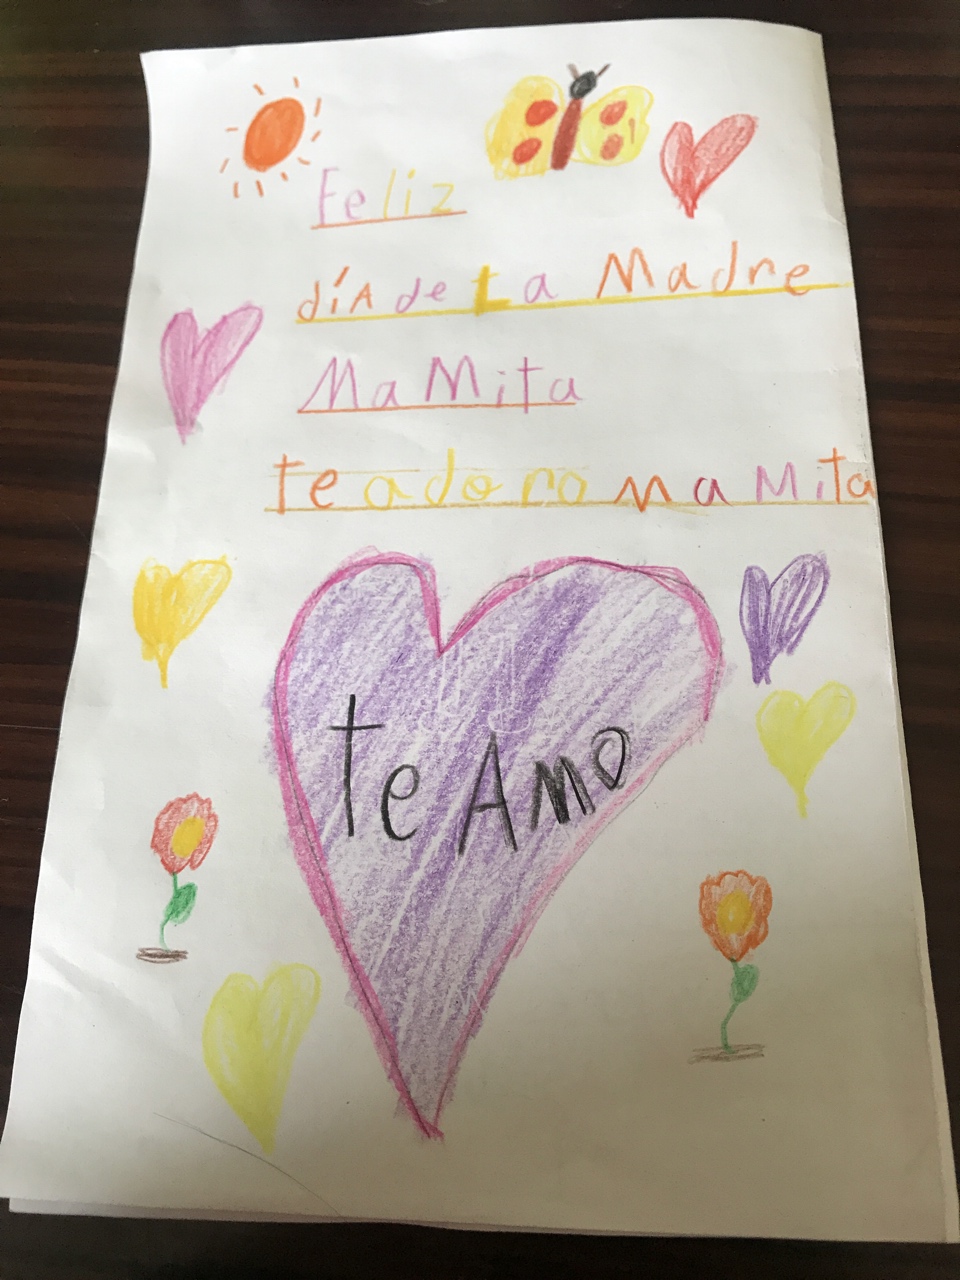 Feliz
díA de La Madre
MaMita
te adoro mamita
te Amo